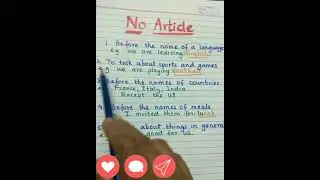 No Article
1. Before the name of a language
eg We are learning English
2. To talk about sports and games
eg we are playing football
Before the names of countries
France, Italy, India
Except the US
Before the names of meals
I invited them for lunch
about things in general
good for us.